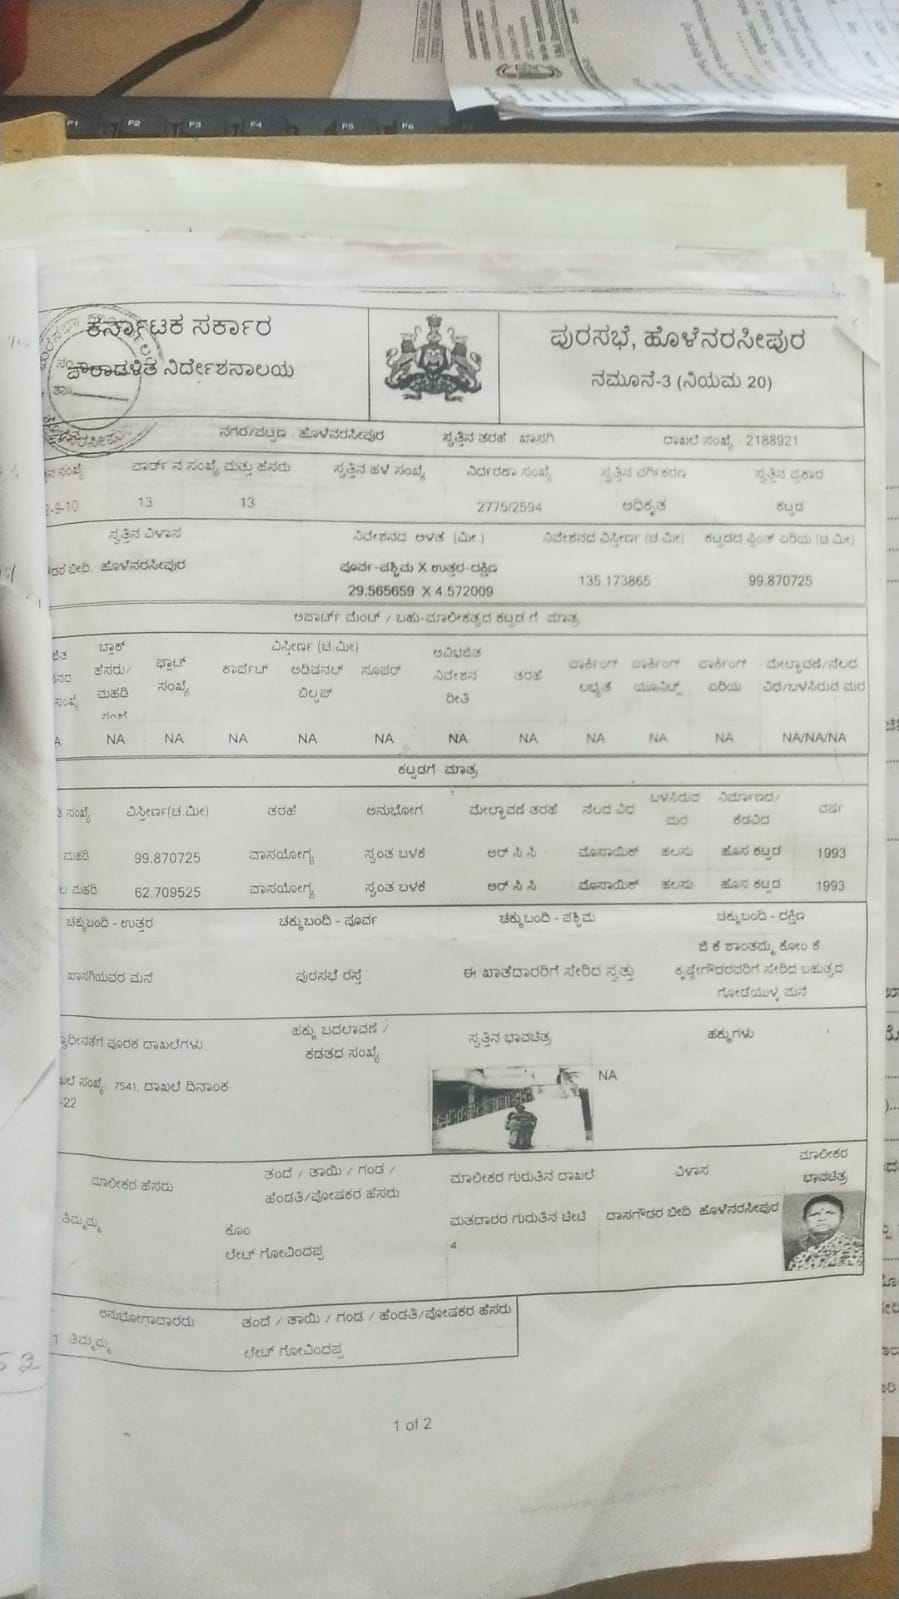 ಕರ್ನಾಟಕ ಸರ್ಕಾರ
ಪೌರಾಡಳಿತ ನಿರ್ದೇಶನಾಲಯ
ಪುರಸಭೆ, ಹೊಳೆನರಸೀಪುರ
ನಮೂನೆ-3 (ನಿಯಮ 20)
ನಗರ/ಪಟ್ಟಣ ಹೊಳೆನರಸೀಪುರ ಸ್ವತ್ತಿನ ತರಹೆ ಖಾಸಗಿ ದಾಖಲೆ ಸಂಖ್ಯೆ 2188921
ಸಂಖ್ಯೆ ವಾರ್ಡ್ ನ ಸಂಖ್ಯೆ ಮತ್ತು ಹೆಸರು ಸ್ವತ್ತಿನ ಹಳೆ ಸಂಖ್ಯೆ ನಿರ್ದರಣಾ ಸಂಖ್ಯೆ ಸ್ವತ್ತಿನ ವರ್ಗೀಕರಣ ಸ್ವತ್ತಿನ ಪ್ರಕಾರ
-9-10 13 13 2775/2594 ಅಧಿಕೃತ ಕಟ್ಟಡ
ಸ್ವತ್ತಿನ ವಿಳಾಸ ನಿವೇಶನದ ಅಳತೆ (ಮೀ.) ನಿವೇಶನದ ವಿಸ್ತೀರ್ಣ (ಚ.ಮೀ) ಕಟ್ಟಡದ ಪ್ಲಿಂತ್ ಏರಿಯ (ಚ.ಮೀ)
ಬೀದಿ, ಹೊಳೆನರಸೀಪುರ ಪೂರ್ವ-ಪಶ್ಚಿಮ X ಉತ್ತರ-ದಕ್ಷಿಣ 135.173865 99.870725
29.565659 X 4.572009
ಅಪಾರ್ಟ್ ಮೆಂಟ್ / ಬಹು-ಮಾಲೀಕತ್ವದ ಕಟ್ಟಡಗೆ ಮಾತ್ರ
ಬ್ಲಾಕ್ ವಿಸ್ತೀರ್ಣ (ಚ.ಮೀ) ಅವಿಭಜಿತ
ಹೆಸರು/ ಫ್ಲಾಟ್ ಕಾರ್ಪೆಟ್ ಅಡಿಷನಲ್ ಸೂಪರ್ ನಿವೇಶನ ತರಹೆ ಪಾರ್ಕಿಂಗ್ ಪಾರ್ಕಿಂಗ್ ಪಾರ್ಕಿಂಗ್ ಮೇಲ್ಚಾವಣಿ/ನೆಲದ
ಸಂಖ್ಯೆ ಮಹಡಿ ಸಂಖ್ಯೆ ಬಿಲ್ಟಪ್ ರೀತಿ ಲಭ್ಯತೆ ಯೂನಿಟ್ಸ್ ಏರಿಯ ವಿಧ/ಬಳಸಿರುವ ಮರ
NA NA NA NA NA NA NA NA NA NA NA/NA/NA
ಕಟ್ಟಡಗೆ ಮಾತ್ರ
ಸಂಖ್ಯೆ ವಿಸ್ತೀರ್ಣ(ಚ.ಮೀ) ತರಹೆ ಅನುಭೋಗ ಮೇಲ್ಚಾವಣಿ ತರಹೆ ನೆಲದ ವಿಧ ಬಳಸಿರುವ ಮರ ನಿರ್ಮಾಣದ/ ಕೆಡವಿದ ವರ್ಷ
ಮಹಡಿ 99.870725 ವಾಸಯೋಗ್ಯ ಸ್ವಂತ ಬಳಕೆ ಆರ್ ಸಿ ಸಿ ಮೊಸಾಯಿಕ್ ಹಲಸು ಹೊಸ ಕಟ್ಟಡ 1993
ಮಹಡಿ 62.709525 ವಾಸಯೋಗ್ಯ ಸ್ವಂತ ಬಳಕೆ ಆರ್ ಸಿ ಸಿ ಮೊಸಾಯಿಕ್ ಹಲಸು ಹೊಸ ಕಟ್ಟಡ 1993
ಚಕ್ಕುಬಂದಿ - ಉತ್ತರ ಚಕ್ಕುಬಂದಿ - ಪೂರ್ವ ಚಕ್ಕುಬಂದಿ - ಪಶ್ಚಿಮ ಚಕ್ಕುಬಂದಿ - ದಕ್ಷಿಣ
ಜಿ ಕೆ ಶಾಂತಮ್ಮ ಕೋಂ ಕೆ
ಖಾಸಗಿಯವರ ಮನೆ ಪುರಸಭೆ ರಸ್ತೆ ಈ ಖಾತೆದಾರರಿಗೆ ಸೇರಿದ ಸ್ವತ್ತು ಕೃಷ್ಣೇಗೌಡರವರಿಗೆ ಸೇರಿದ ಬಹುತ್ವದ
ಗೋಡೆಯುಳ್ಳ ಮನೆ
ಪೂರಕ ದಾಖಲೆಗಳು ಹಕ್ಕು ಬದಲಾವಣೆ / ಸ್ವತ್ತಿನ ಭಾವಚಿತ್ರ ಹಕ್ಕುಗಳು
ಕಡತದ ಸಂಖ್ಯೆ
ಸಂಖ್ಯೆ 7541, ದಾಖಲೆ ದಿನಾಂಕ: NA
-22
ಮಾಲೀಕರ ಹೆಸರು ತಂದೆ / ತಾಯಿ / ಗಂಡ / ಮಾಲೀಕರ ಗುರುತಿನ ದಾಖಲೆ ವಿಳಾಸ ಮಾಲೀಕರ
ಹೆಂಡತಿ/ಪೋಷಕರ ಹೆಸರು ಭಾವಚಿತ್ರ
ತಿಮ್ಮಮ್ಮ ಕೊಂ ಮತದಾರರ ಗುರುತಿನ ಚೀಟಿ ದಾಸಗೌಡರ ಬೀದಿ ಹೊಳೆನರಸೀಪುರ
ಲೇಟ್ ಗೋವಿಂದಪ್ಪ 4
ಅನುಭೋಗಾದಾರರು ತಂದೆ / ತಾಯಿ / ಗಂಡ / ಹೆಂಡತಿ/ಪೋಷಕರ ಹೆಸರು
1 ತಿಮ್ಮಮ್ಮ ಲೇಟ್ ಗೋವಿಂದಪ್ಪ
52
1 of 2